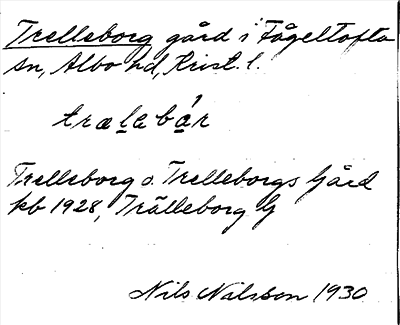 Trelleborg gård i Fågeltofta
sn, Albo hd, Krist. l.
træle bár
Trelleborg o. Trelleborgs Gård
kb 1928, Trälleborg G
Nils Nilsson 1930